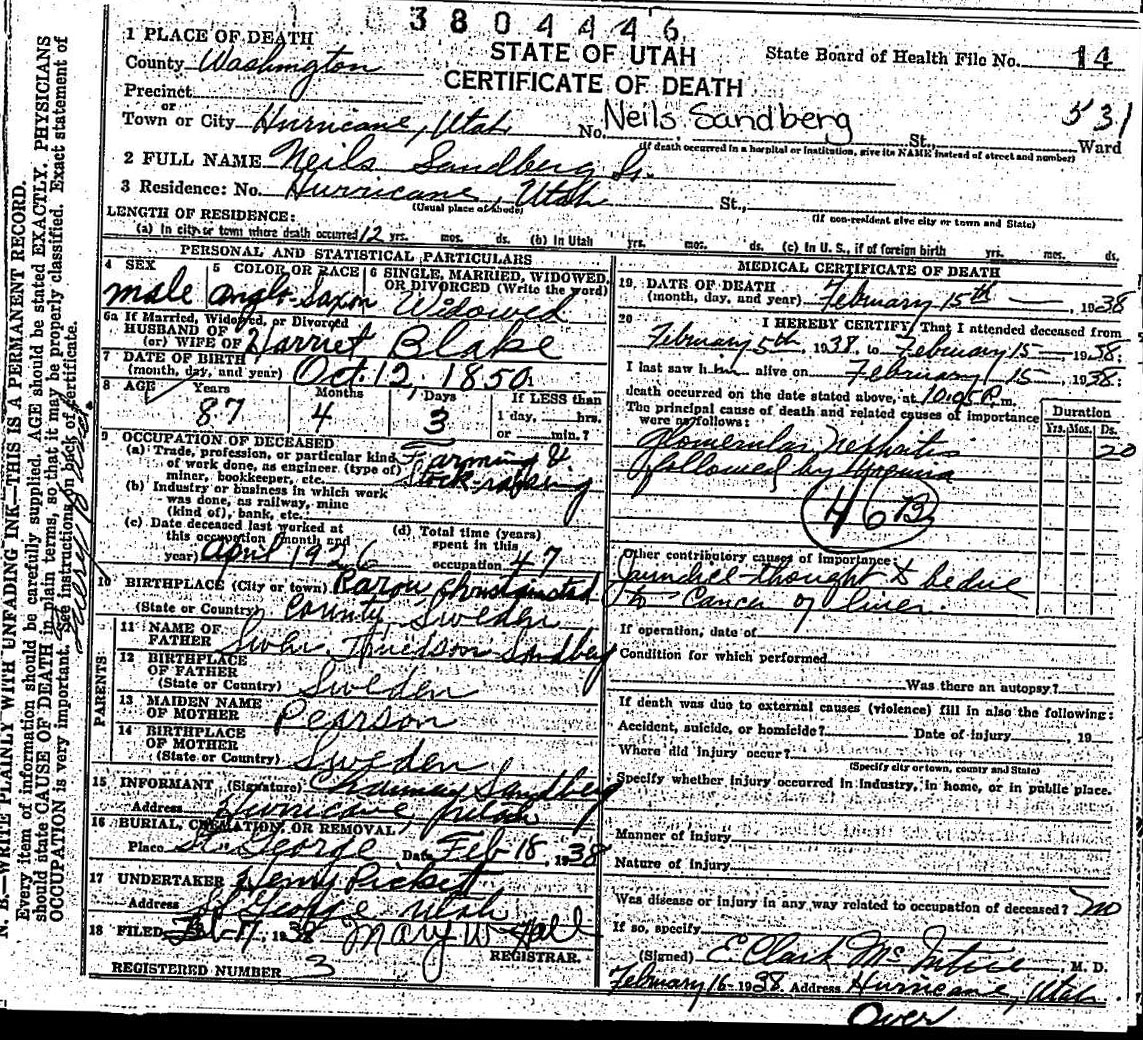 3804446
1 PLACE OF DEATH
STATE OF UTAH
CERTIFICATE OF DEATH
State Board of Health File No. 14
County Washington
Precinct
or
Town or City Hurricane, Utah No. Neils Sandberg St., Ward
531
(If death occurred in a hospital or institution, give its NAME instead of street and number)
2 FULL NAME Neils Sandberg Sr.
3 Residence: No. Hurricane, Utah St.,
(Usual place of abode) (If non-resident give city or town and State)
LENGTH OF RESIDENCE:
(a) In city or town where death occurred 12 yrs. mos. ds. (b) In Utah yrs. mos. ds. (c) In U. S., if of foreign birth yrs. mos. ds.
PERSONAL AND STATISTICAL PARTICULARS
4 SEX
male
5 COLOR OR RACE
Anglo-Saxon
6 SINGLE, MARRIED, WIDOWED, OR DIVORCED (Write the word)
Widowed
6a If Married, Widowed, or Divorced
HUSBAND OF
(or) WIFE OF Harriet Blake
7 DATE OF BIRTH
(month, day, and year) Oct. 12, 1850
8 AGE Years Months Days If LESS than
87 4 3 1 day, hrs.
or min.?
9 OCCUPATION OF DECEASED
(a) Trade, profession, or particular kind of work done, as engineer (type of) miner, bookkeeper, etc. Farming & Stock-raising
(b) Industry or business in which work was done, as railway, mine (kind of), bank, etc.
(c) Date deceased last worked at this occupation (month and year) April 1926
(d) Total time (years) spent in this occupation 47
10 BIRTHPLACE (City or town)
(State or Country) County, Sweden
PARENTS
11 NAME OF FATHER Sandberg
12 BIRTHPLACE OF FATHER
(State or Country) Sweden
13 MAIDEN NAME OF MOTHER Pearson
14 BIRTHPLACE OF MOTHER
(State or Country) Sweden
15 INFORMANT (Signature) Sandberg
Address Hurricane, Utah
16 BURIAL, CREMATION, OR REMOVAL
Place St. George Date Feb 18, 1938
17 UNDERTAKER Henry Pickett
Address St George Utah
18 FILED Feb-17, 1938 Mary W Hall
REGISTRAR.
REGISTERED NUMBER 3
MEDICAL CERTIFICATE OF DEATH
19 DATE OF DEATH
(month, day, and year) February 15th, 1938
20 I HEREBY CERTIFY, That I attended deceased from
February 5th, 1938, to February 15 1938:
I last saw him alive on February 15, 1938:
death occurred on the date stated above, at m.
The principal cause of death and related causes of importance were as follows:
Duration
Yrs. Mos. Ds.
Glomerular Nephritis 20
followed by
46B
Other contributory causes of importance:
Jaundice thought to be due
to Cancer of liver.
If operation, date of
Condition for which performed
Was there an autopsy?
If death was due to external causes (violence) fill in also the following:
Accident, suicide, or homicide? Date of injury, 19
Where did injury occur?
(Specify city or town, county and State)
Specify whether injury occurred in industry, in home, or in public place.
Manner of injury
Nature of injury
Was disease or injury in any way related to occupation of deceased? no
If so, specify
(Signed) E. Clark McIntire, M. D.
February 16-1938 Address Hurricane, Utah
Over
N. B.—WRITE PLAINLY WITH UNFADING INK—THIS IS A PERMANENT RECORD.
Every item of information should be carefully supplied. AGE should be stated EXACTLY. PHYSICIANS
should state CAUSE OF DEATH in plain terms, so that it may be properly classified. Exact statement of
OCCUPATION is very important. See instructions on back of certificate.